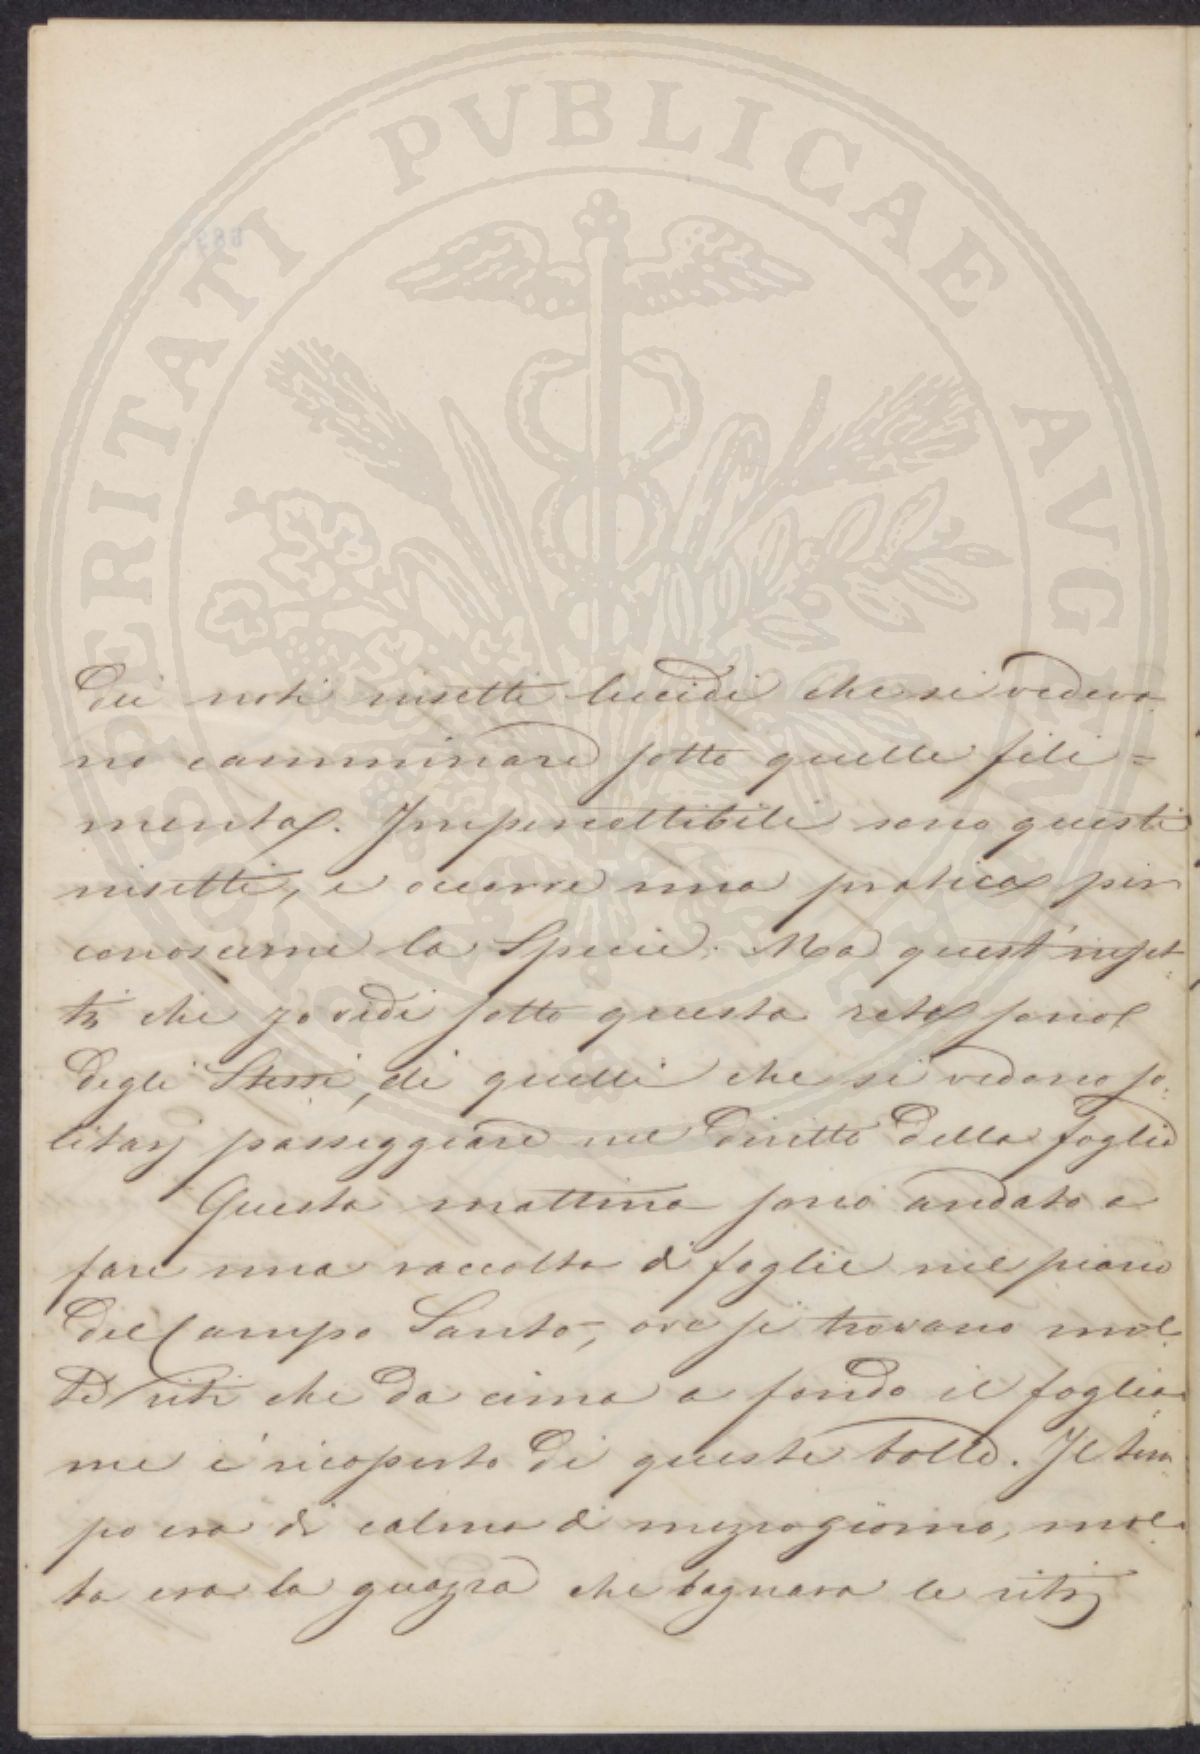 PROSPERITATI PVBLICAE AVGENDAE
dei noti insetti lucidi che si vedeva
no camminare sotto quelle fili=
menta. Impercettibili sono questi
insetti, e occorre una pratica per
conoscerne la Specie. Ma quest'inset-
ti che io vedi sotto questa rete sono
degli Stessi, di quelli che si vedono so-
litarj passeggiare nel diritto della foglia
Questa mattina sono andato a
fare una raccolta di foglie nel piano
del Campo Santo, ove si trovano mol-
te viti che da cima a fondo il foglia-
me è ricoperto di queste bolle. Il tem
po era di calma di mezzogiorno, mol-
ta era la guazza che bagnava le viti